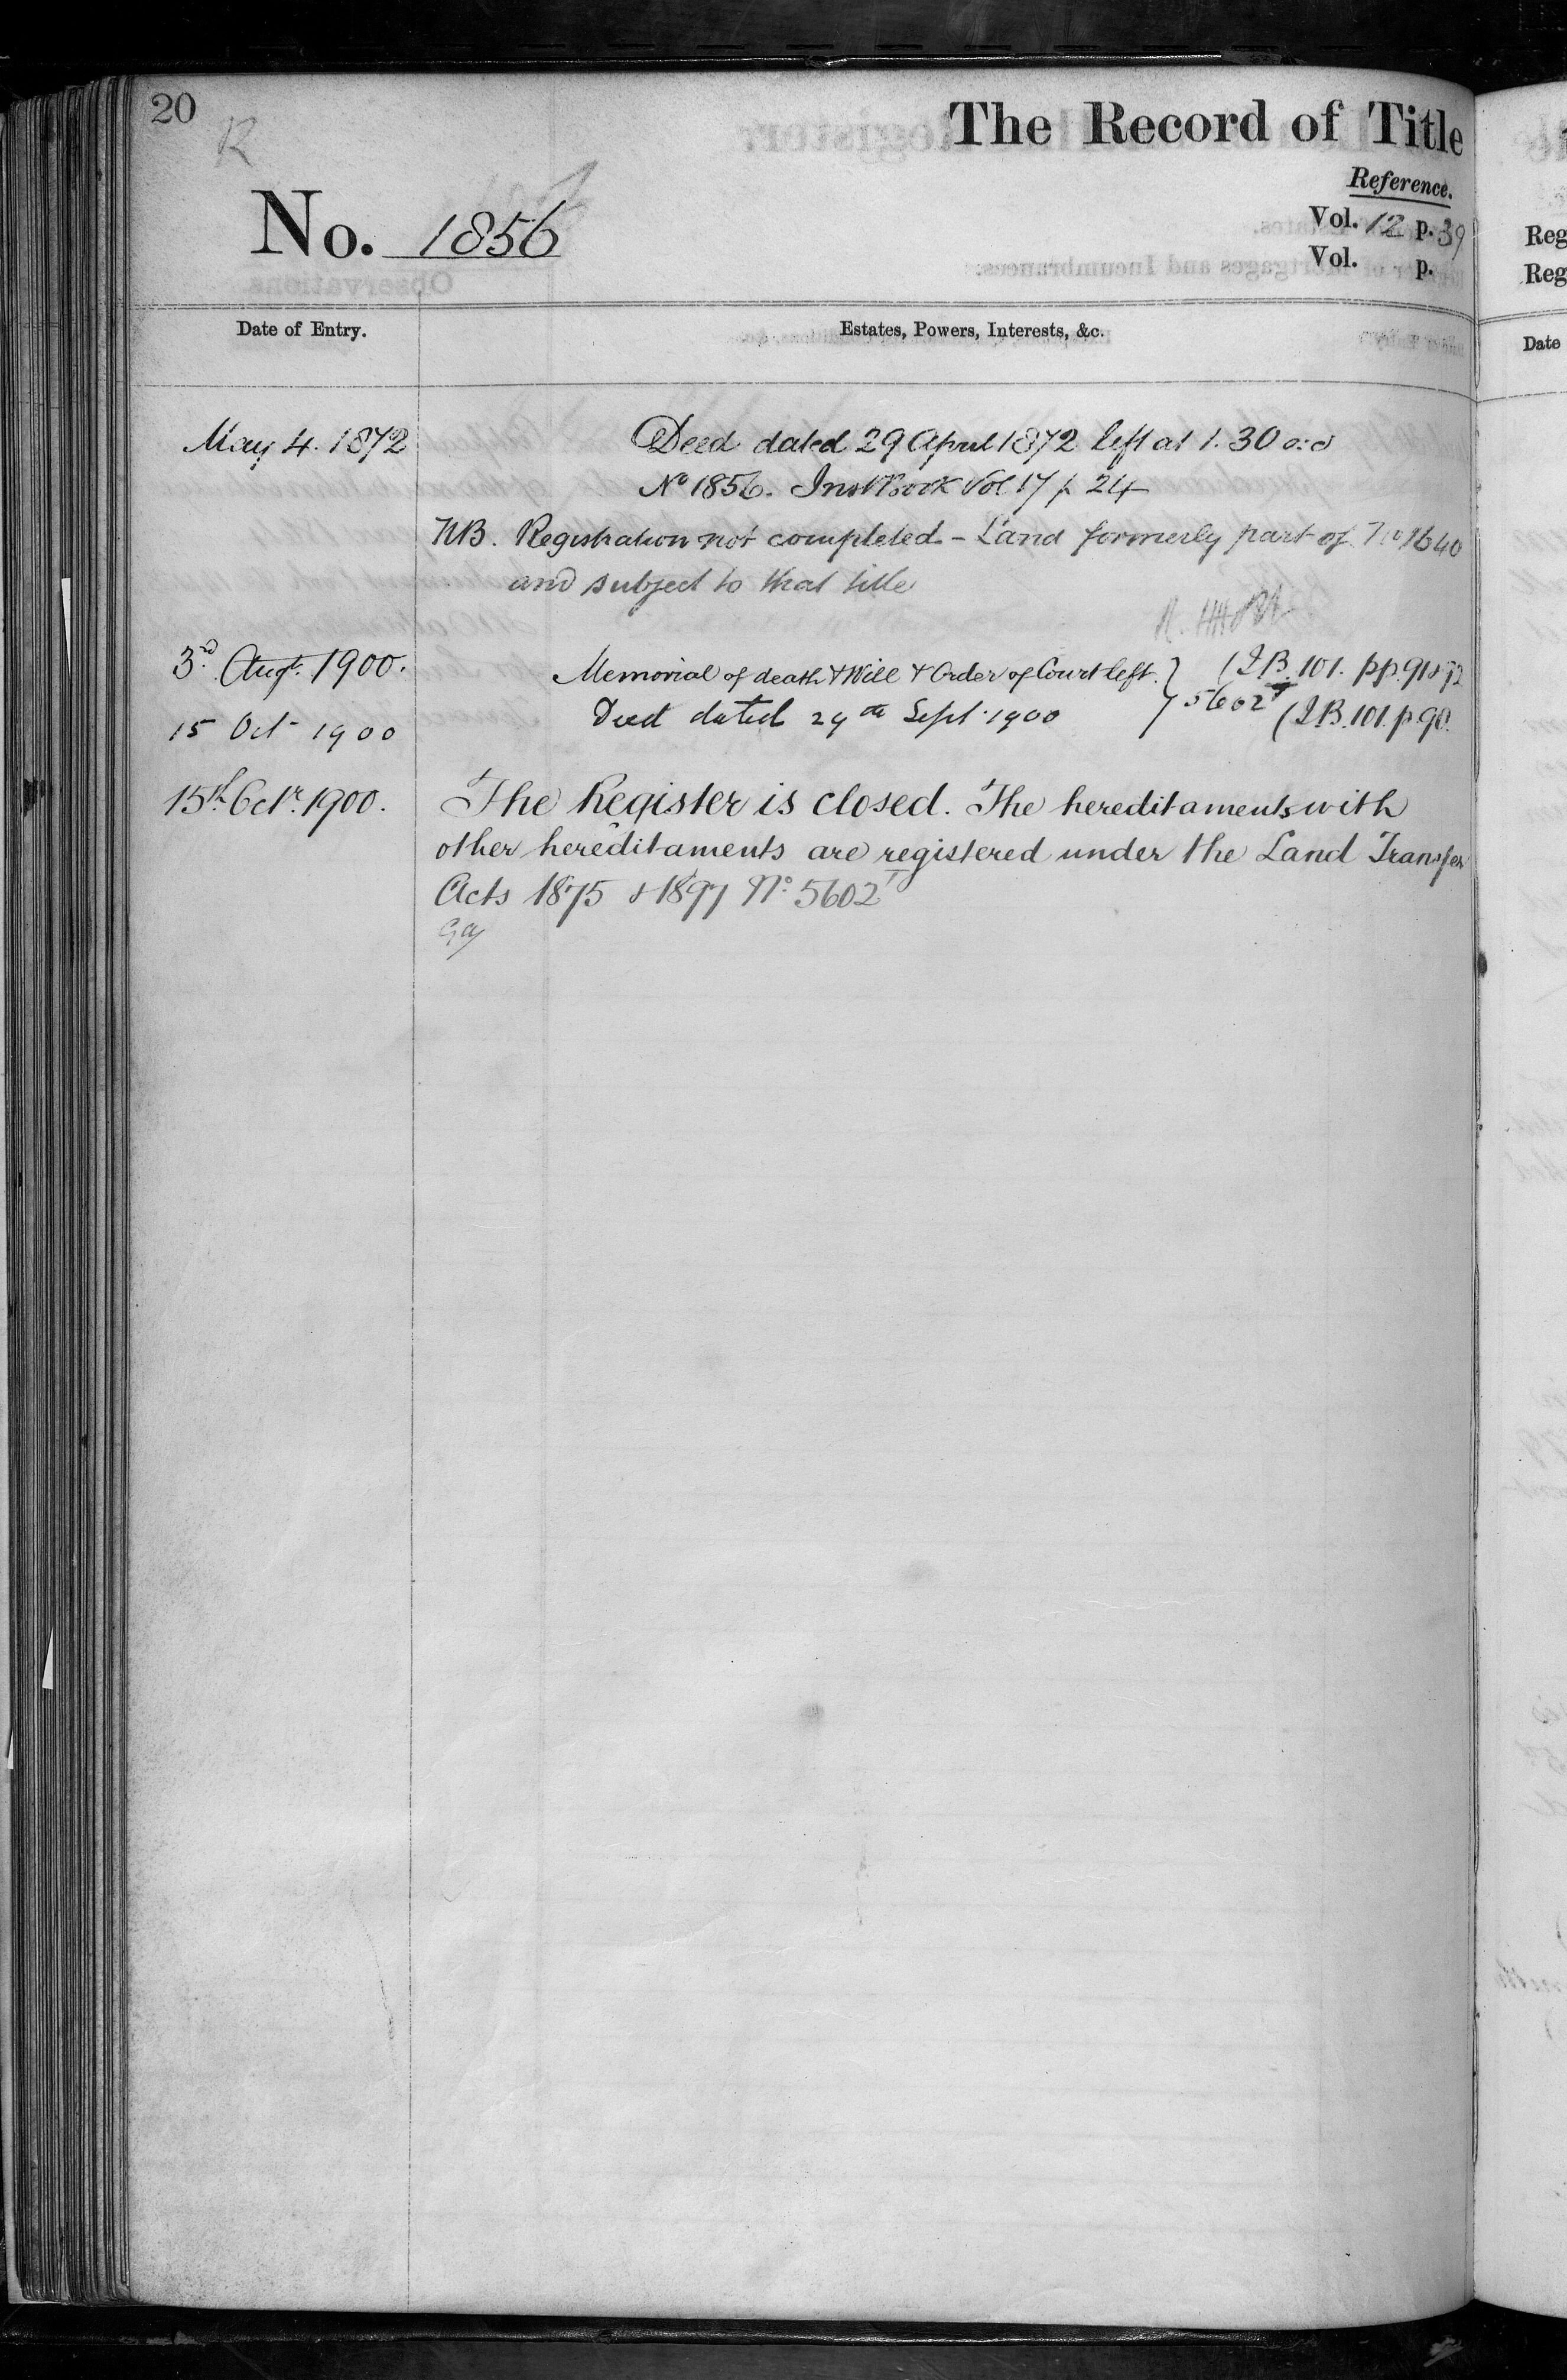 20
R
The Record of Title
Reference.
No. 1856
Vol. 12 p. 39
Vol. p.
Date of Entry.
Estates, Powers, Interests, &c.
May 4. 1872
Deed dated 29 April 1872 left at 1.30
No 1856. Inst Book Vol 17 p 24
NB. Registration not completed - Land formerly part of No 1640
and subject to that title
3rd Augt. 1900.
Memorial of death & Will & Order of Court left. } (I B. 101. pp. 91 & 92
15 Oct 1900
Deed dated 29th Sept. 1900 } 5602 (I B. 101. p. 90.
15th Octr. 1900.
The Register is closed. The hereditaments with
other hereditaments are registered under the Land Transfer
Acts 1875 & 1897 No. 5602
Reg
Reg
Date